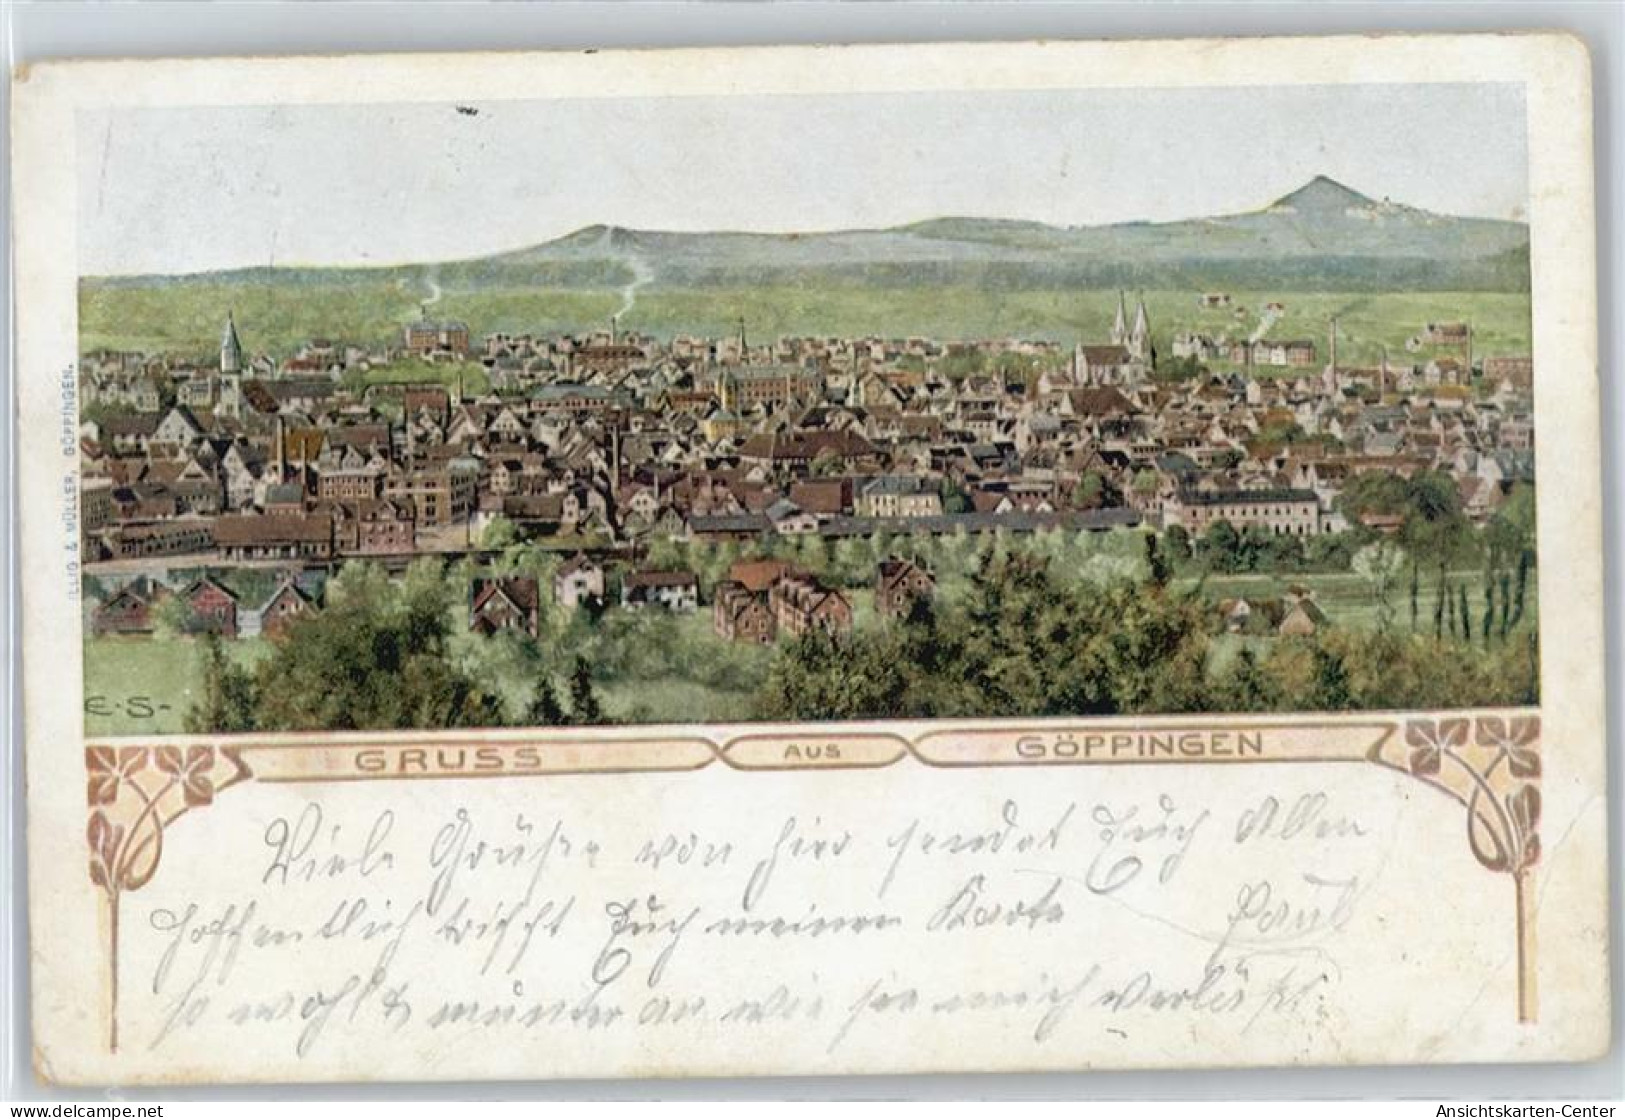 ILLIG & MÜLLER, GÖPPINGEN.
E. S-
GRUSS AUS GÖPPINGEN
Viele Grüße von hier sendet Euch Allen
Hoffentlich trifft Euch meine Karte Paul
so wohl & munter an wie sie mich verläßt.
www.delcampe.net
posta_pro
Ansichtskarten-Center